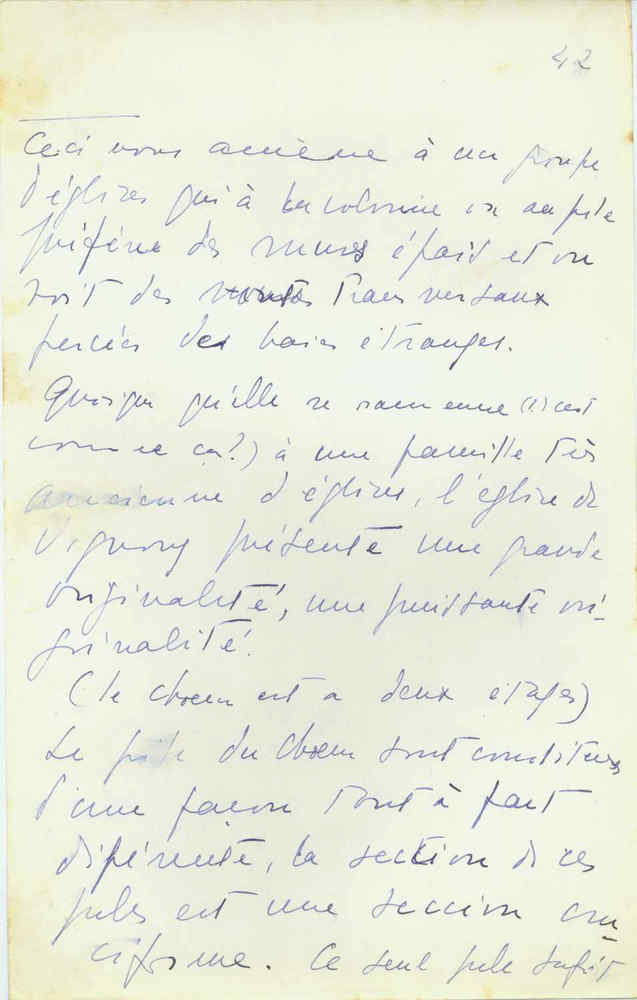 42
Ceci nous amène à un groupe
d'églises qui à la colonne ou au pile
préfère des murs épais et on
voit des murs transversaux
percés des baies étranges.
Quoique qu'elle se ramenne (!) c'est
comme ça?) à une famille très
ancienne d'églises, l'église de
Vignory présente une grande
originalité, une puissante ori-
ginalité.
(le choeur est a deux étages)
Le pile du choeur sont constitues
d'une façon tout à fait
différente, la section de ces
piles est une section cru-
ciforme. Ce seul pile sufit